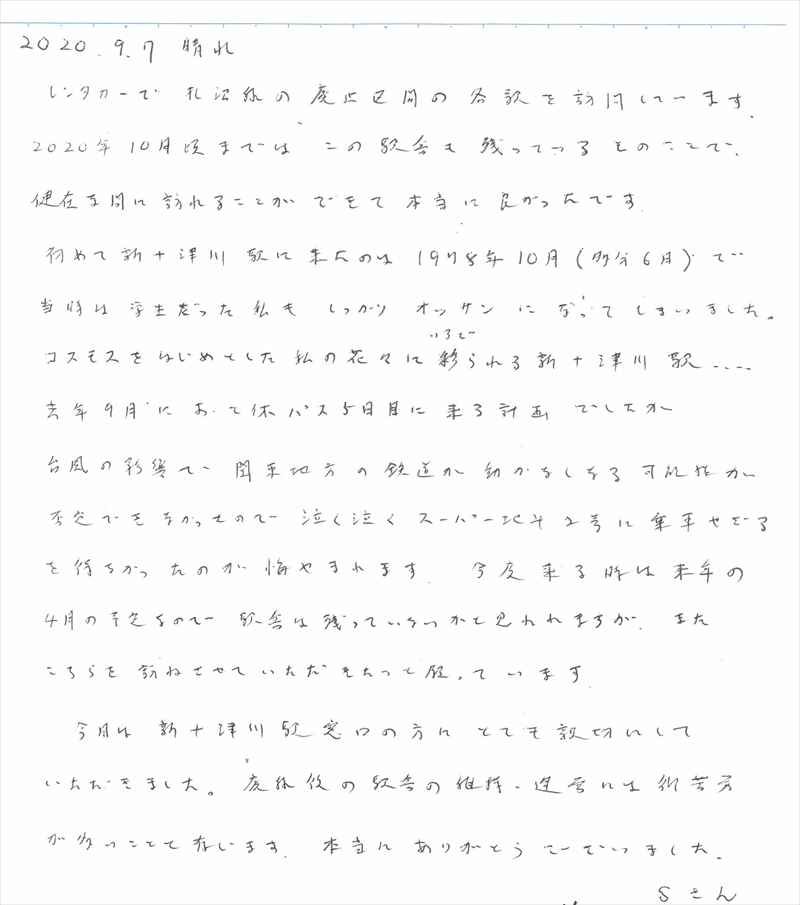 2020.9.7 晴れ
レンタカーで 札沼線の廃止区間の各駅を訪問しています.
2020年10月頃までは この駅舎も残っているとのことで、
健在な間に訪れることができて本当に良かったです.
初めて新十津川駅に来たのは1978年10月(多分6日)で
当時は学生だった私も しっかりオッサンになってしまいました。
いろど
コスモスをはじめとした私の花々に彩られる新十津川駅....
去年9月に パス5日目に来る計画でしたが
台風の影響で関東地方の鉄道が動かなくなる可能性が
否定できなかったので泣く泣くスーパー北斗2号に乗車せざる
を得なかったのが悔やまれます. 今度来る時は来年の
4月の予定なので駅舎は残っていないかと思われますが、また
こちらを訪ねさせていただきたいと願っています.
今日は新十津川駅窓口の方にとても親切にして
いただきました。廃線後の駅舎の維持・運営には御苦労
が多いことと存じます. 本当にありがとうございました.
Sさん